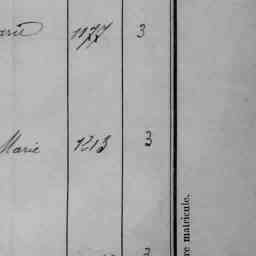 1077 3
Marie 1213 3
3
re matricule.